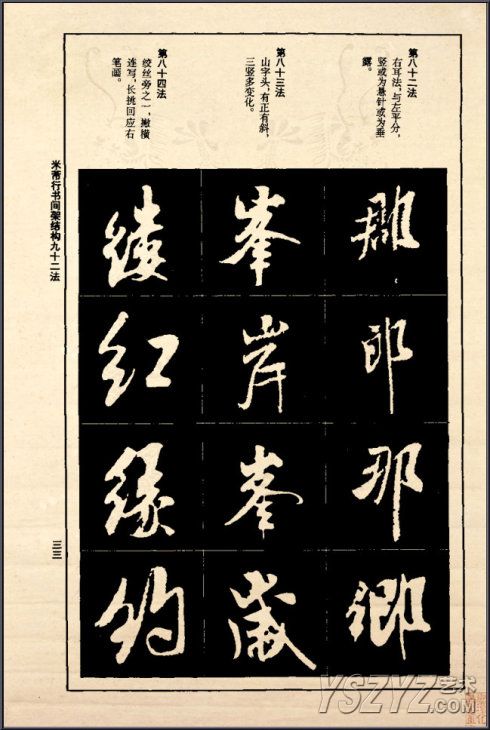 第八十二法
右耳法，与左平分，
竖或为悬针或为垂
露。
郡
郎
那
卿
第八十三法
山字头，有正有斜，
三竖多变化。
峯
岸
峯
歲
第八十四法
绞丝旁之一，撇横
连写，长挑回应右
笔画。
紅
緣
約
米芾行书间架结构九十二法
三三
YSZYZ艺术
.COM